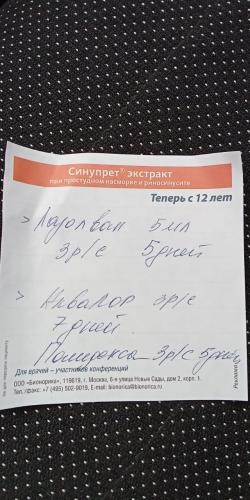 Синупрет® экстракт
при простудном насморке и риносинусите
Теперь с 12 лет
> Лазолван 5 мл
3 р/с 5 дней
> Аквалор 3р/с
7 дней
3р/с 5 дней
Для врачей – участников конференций
ООО «Бионорика», 119619, г. Москва, 6-я улица Новые Сады, дом 2, корп. 1.
Тел./факс: +7 (495) 502-9019, E-mail: bionorica@bionorica.ru
Реклама